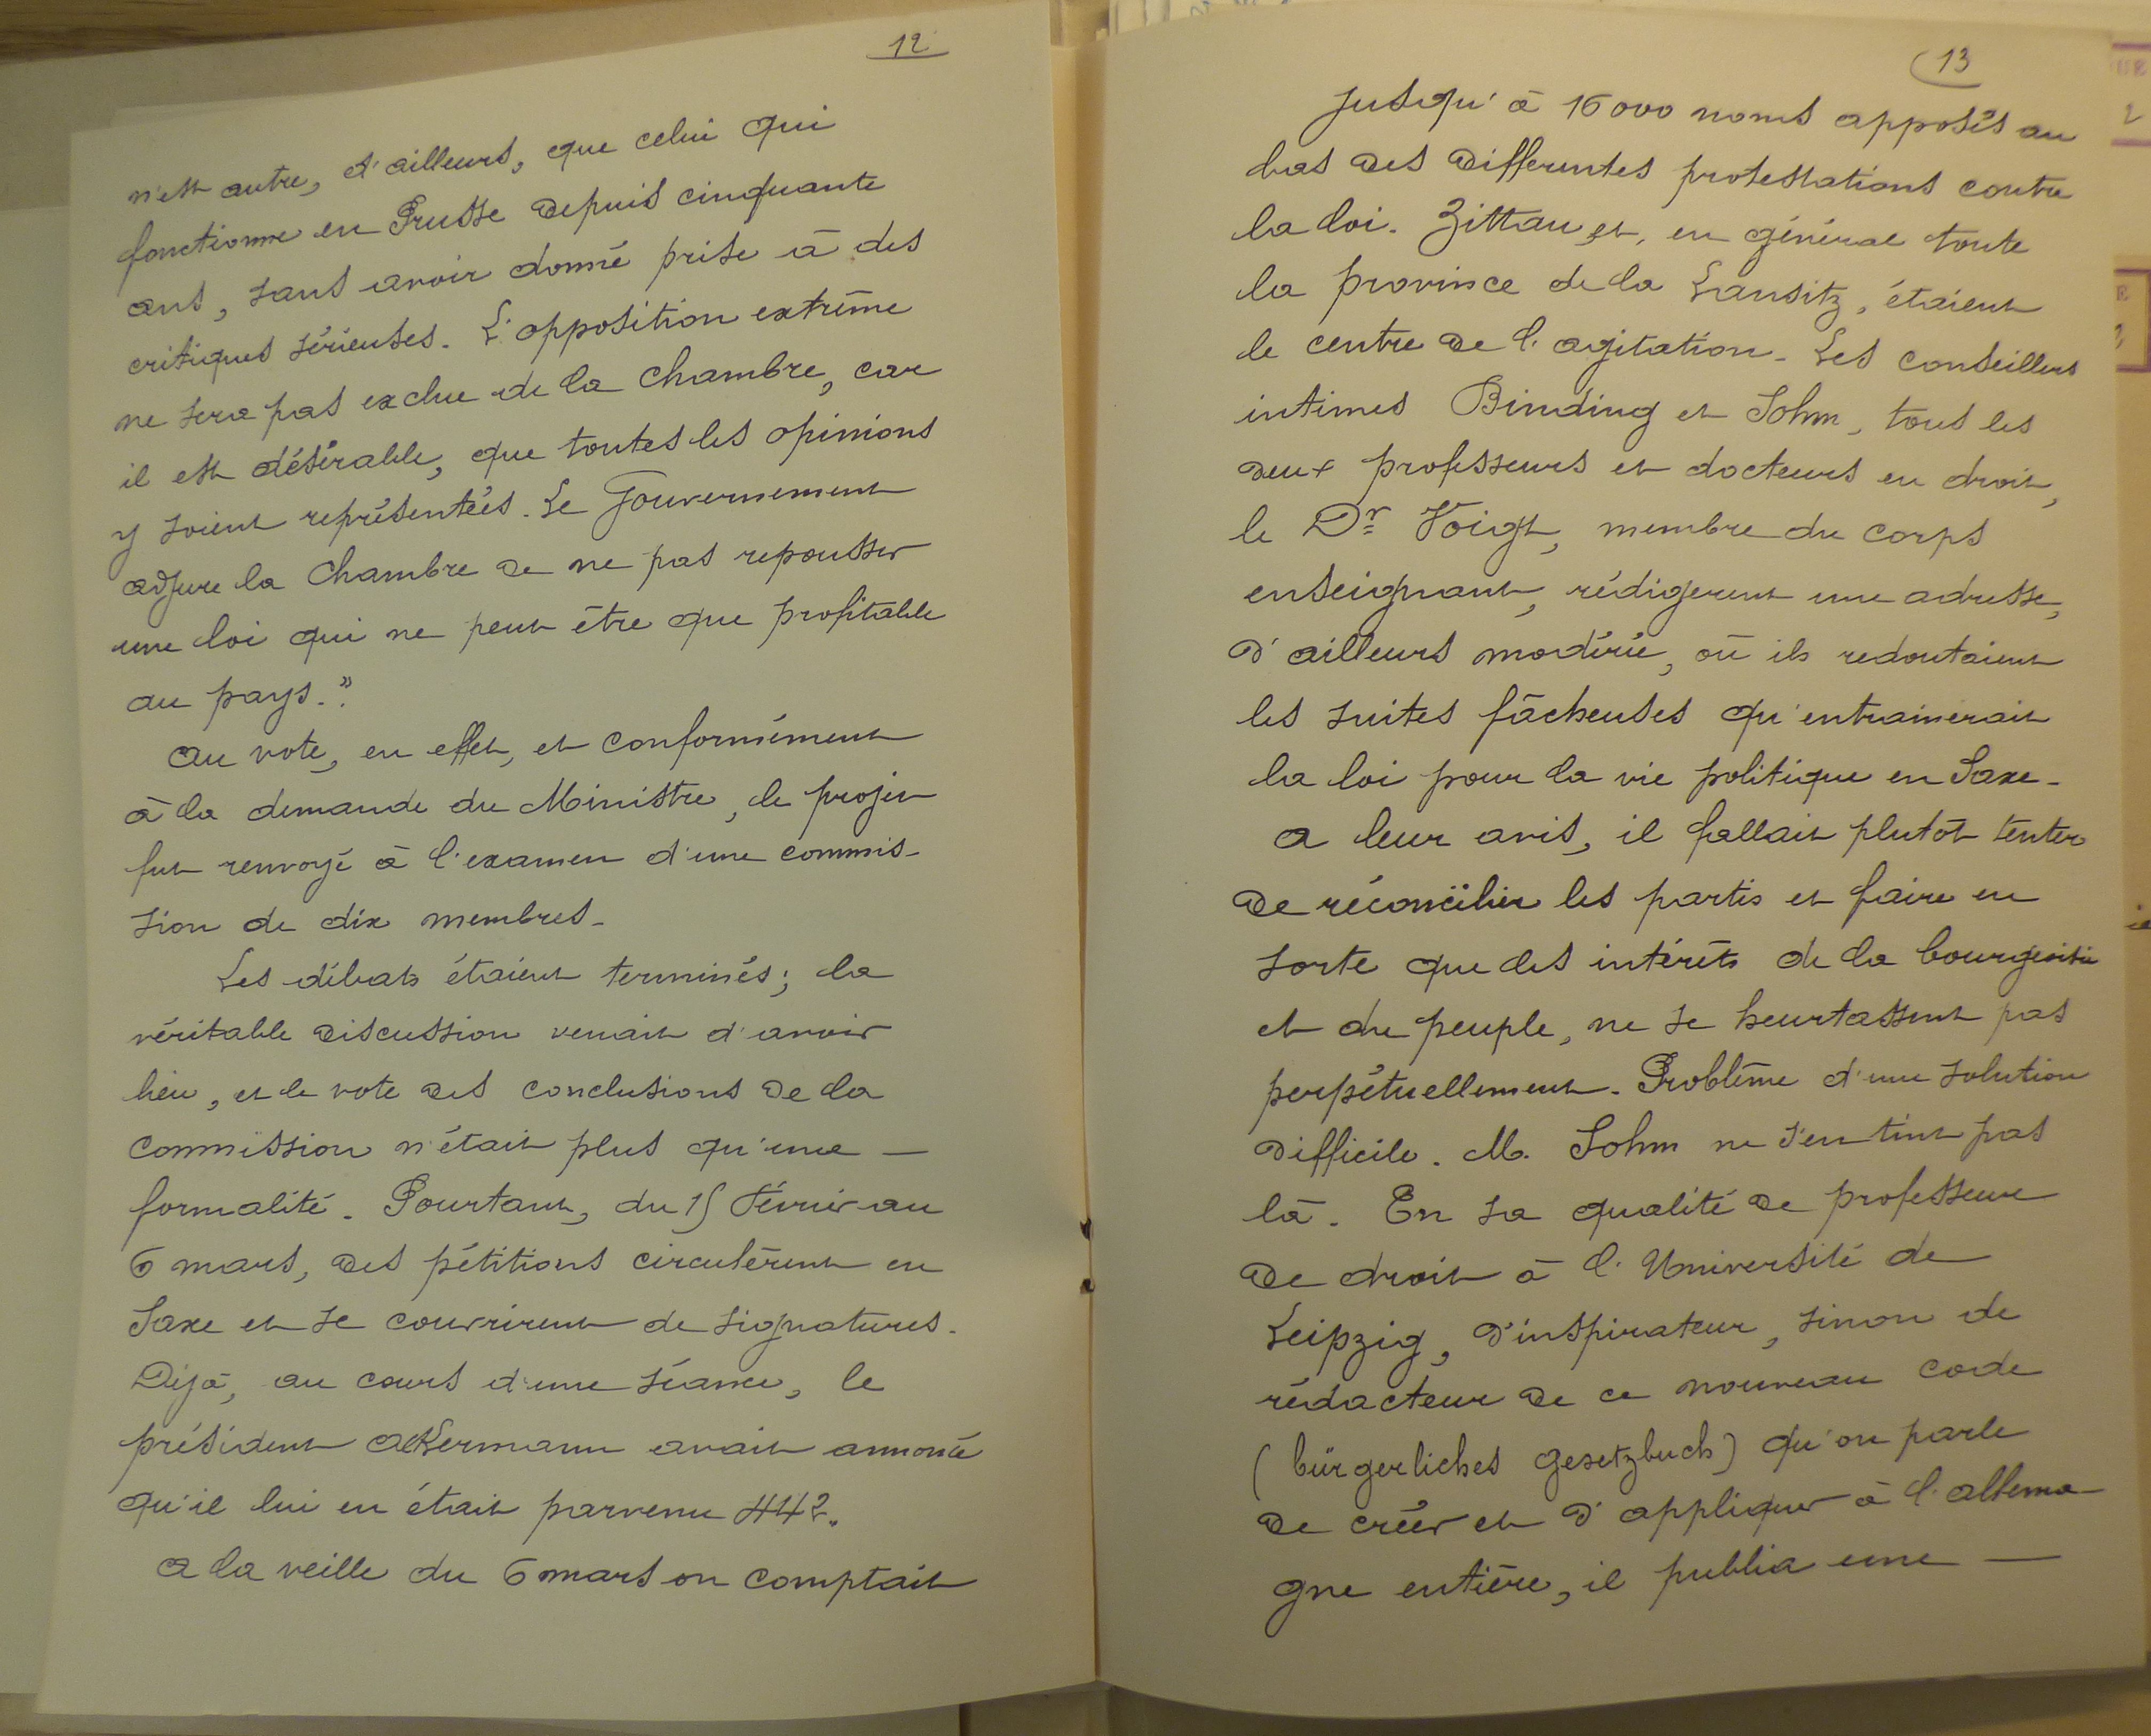 12
n'est autre, d'ailleurs, que celui qui
fonctionne en Prusse depuis cinquante
ans, sans avoir donné prise à des
critiques sérieuses. L'opposition extrême
ne sera pas exclue de la Chambre, car
il est désirable, que toutes les opinions
y soient représentées. Le Gouvernement
adjure la Chambre de ne pas repousser
une loi qui ne peut être que profitable
au pays."
Au vote, en effet, et conformément
à la demande du Ministre, le projet
fut renvoyé à l'examen d'une commis-
sion de dix membres.
Les débats étaient terminés; la
véritable discussion venait d'avoir
lieu, et le vote des conclusions de la
commission n'était plus qu'une —
formalité. Pourtant, du 15 Février au
6 mars, des pétitions circulèrent en
Saxe et se couvrirent de signatures.
Déjà, au cours d'une séance, le
président Ackermann avait annoncé
qu'il lui en était parvenu 442.
A la veille du 6 mars on comptait
13
jusqu'à 16000 noms apposés au
bas des différentes protestations contre
la loi. Zittau et, en général toute
la province de la Lausitz, étaient
le centre de l'agitation. Les conseillers
intimes Binding et Sohm, tous les
deux professeurs et docteurs en droit,
le Dr Voigt, membre du corps
enseignant, rédigerent une adresse,
d'ailleurs modérée, où ils redoutaient
les suites fâcheuses qu'entrainerait
la loi pour la vie politique en Saxe.
A leur avis, il fallait plutôt tenter
de réconcilier les partis et faire en
sorte que les intérêts de la bourgeoisie
et du peuple, ne se heurtassent pas
perpétuellement. Problême d'une solution
difficile. M. Sohm ne s'en tint pas
là. En sa qualité de professeur
de droit à l'Université de
Leipzig, d'inspirateur, sinon de
rédacteur de ce nouveau code
(bürgerliches gesetzbuch) qu'on parle
de créer et d'appliquer à l'allema-
gne entière, il publia une —